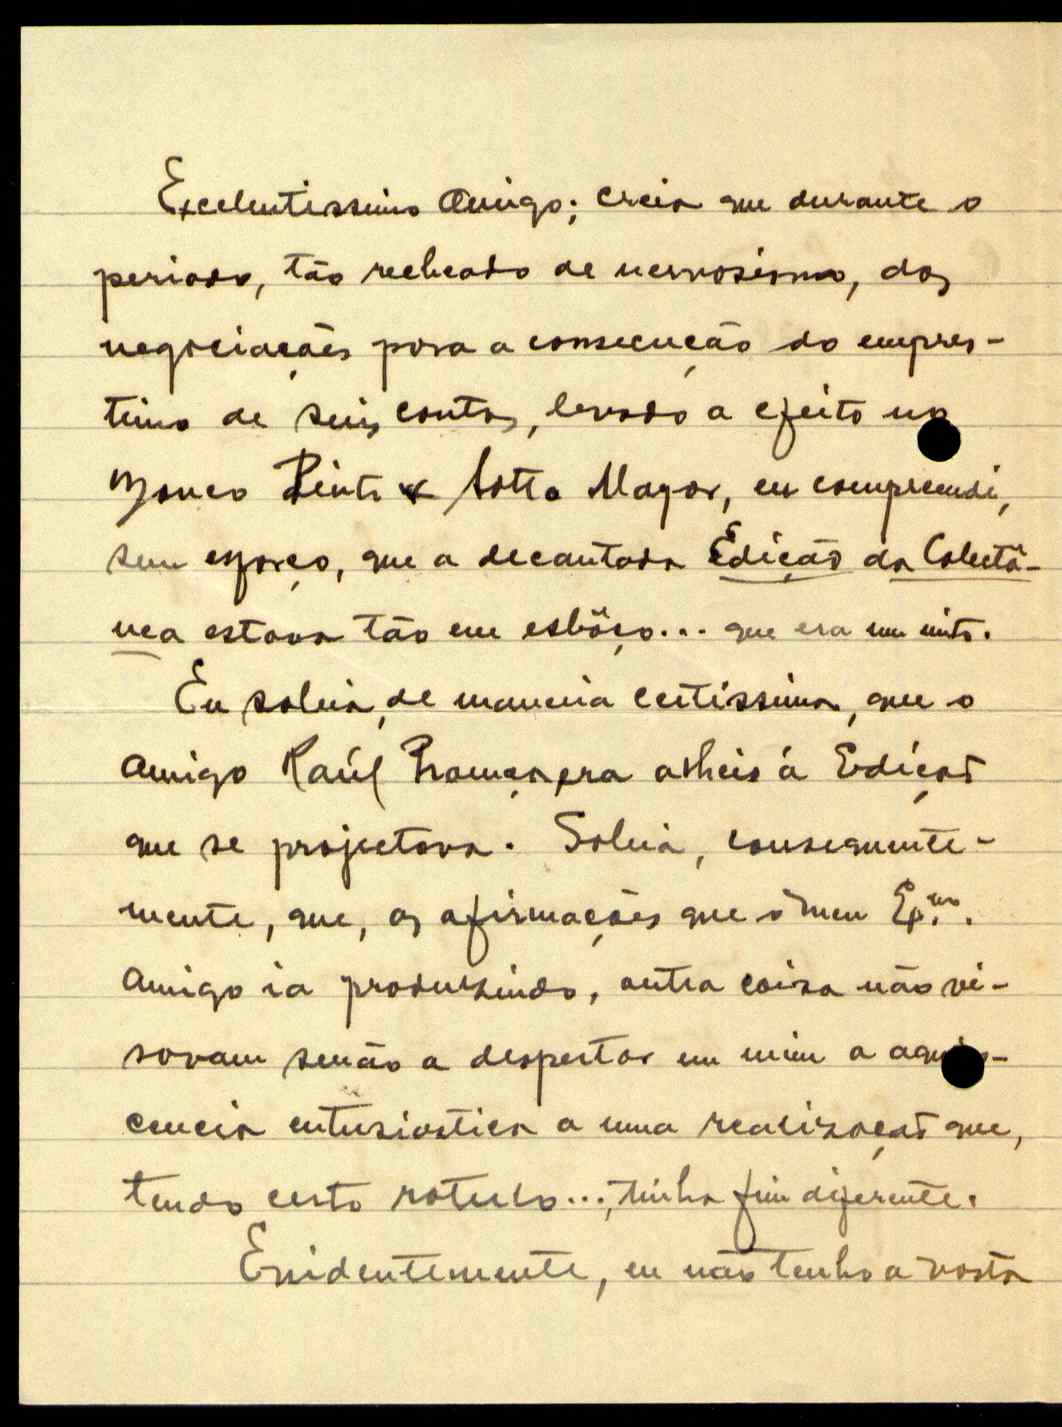 Excelentissimo Amigo; creia que durante o
periodo, tão recheado de nervosismo, das
negociações para a consecução do empres-
timo de seis contos, levado a efeito no
Banco Pinto & Sotto Mayor, eu compreendi,
sem esforço, que a decantada Edição da Colectâ-
nea estava tão em esbôço... que era um mito.
Eu sabia, de maneira certissima, que o
amigo Raúl Proença, era alheio á Edição
que se projectava. Sabia, consequente-
mente, que, as afirmações que o meu Exmo.
Amigo ia produzindo, outra coisa não vi-
savam senão a despertar em mim a aquies-
cencia entusiastica a uma realização que,
tendo certo rotulo..., tinha fim diferente.
Evidentemente, eu não tenho a vasta